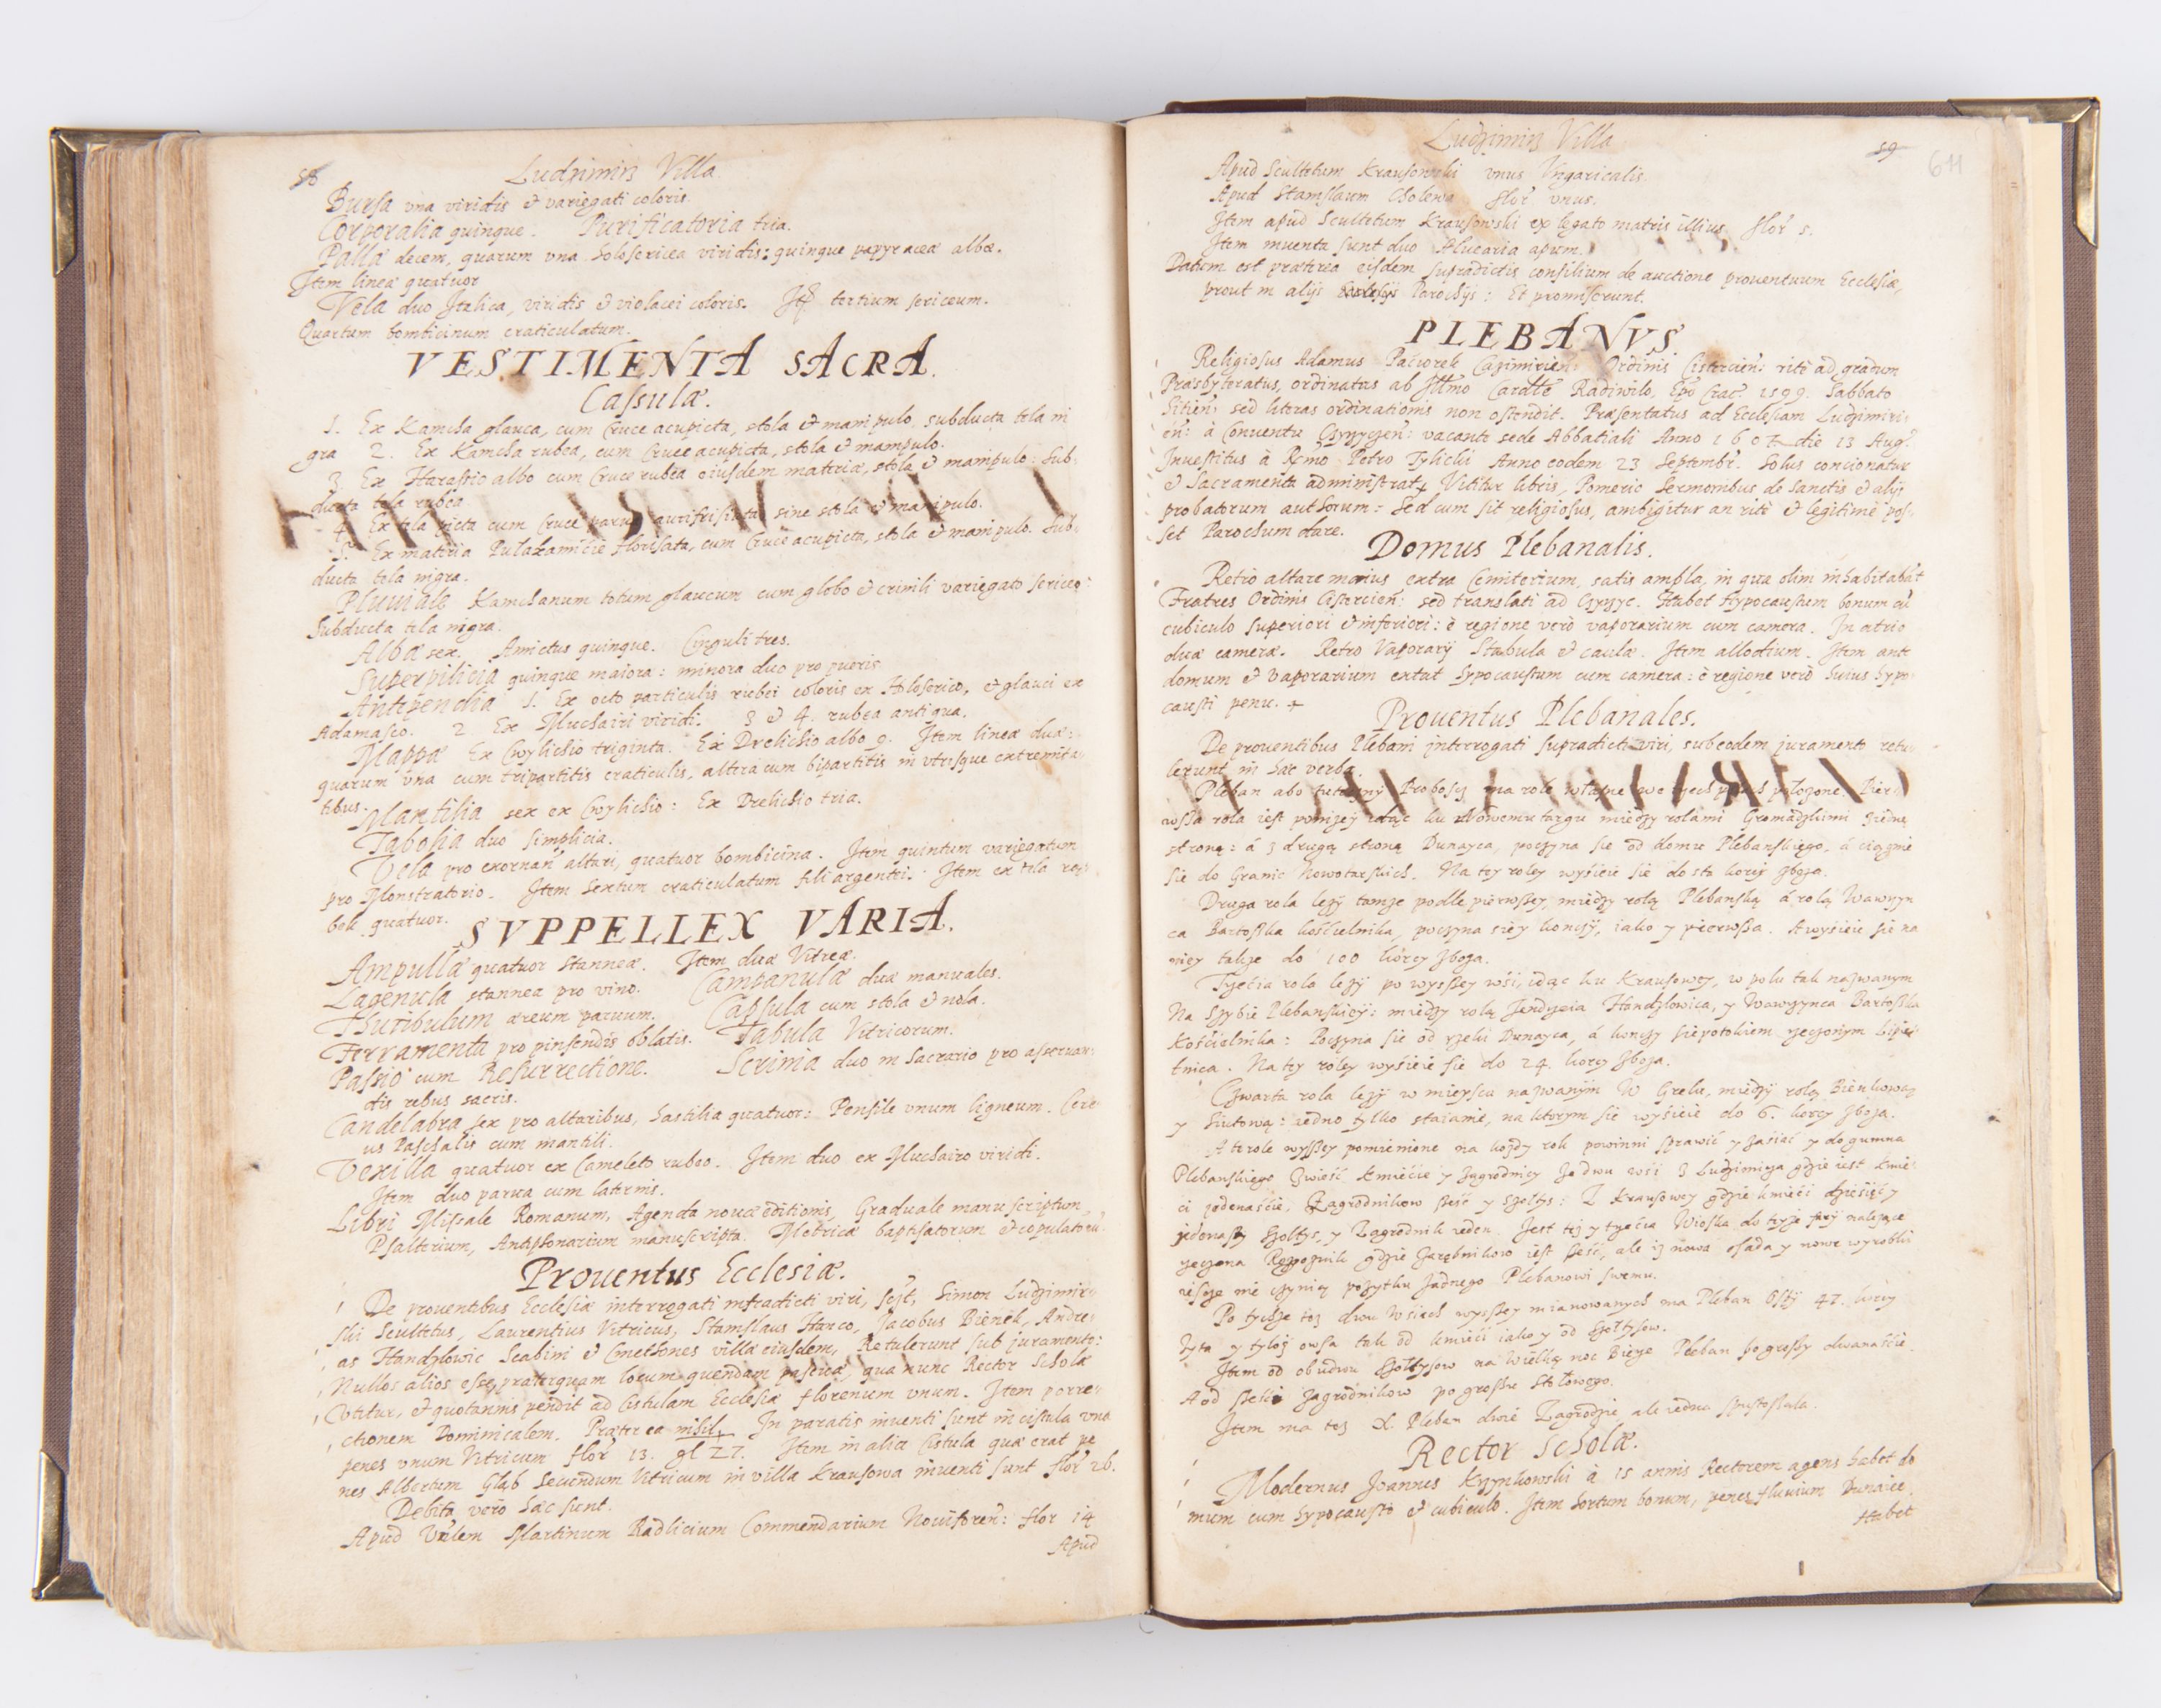 58
Ludzimirz Villa.
Bursa vna viridis & variegati coloris.
Corporalia quinque. Purificatoria tria.
Pallæ decem, quarum vna holosericea viridis: quinque papyraceæ albæ.
Item lineæ quatuor
Vela duo Italica, viridis & violacei coloris. tertium sericeum.
Quartum bombicinum craticulatum.
VESTIMENTA SACRA.
Casulæ.
1. Ex Kamcha glauca, cum Cruce acupicta, stola & manipulo, subducta tela ni
gra 2. Ex Kamcha rubea, cum Cruce acupicta, stola & manipulo.
3. Ex Harassio albo cum Cruce rubea eiusdem materiæ, stola & manipulo: Sub
ducta tela rubea
4. Ex tela picta cum Cruce sine stola & manipulo.
5. Ex materia florisata, cum Cruce acupicta, stola & manipulo. Sub
ducta tela nigra.
Pluuiale Kamchanum totum glaucum cum globo & crinili variegato sericeo:
Subducta tela nigra.
Albæ sex. Amictus quinque. Cinguli tres.
Superpilicia quinque maiora: minora duo pro pueris
Antipendia 1. Ex octo particulis rubei coloris ex Holoserico, & glauci ex
Adamasco. 2. Ex Muchairi viridi. 3 & 4. rubea antiqua.
Mappæ Ex Cwylichio triginta. Ex Drelichio albo 9. Item lineæ duæ:
quarum vna cum tripartitis craticulis, altera cum bipartitis in vtrisque extremita
tibus.
Mantilia sex ex Cwylichio: Ex Drelichio tria.
duo simplicia.
Vela pro exornan altari, quatuor bombicina. Item quintum variegatum
pro Monstratorio. Item Sextum craticulatum fili argentei. Item ex tela
quatuor.
SVPPELLEX VARIA.
Ampullæ quatuor Stanneæ. Item duæ Vitreæ.
Lagenula stannea pro vino. Campanulæ duæ manuales.
Thuribulum æreum paruum. Capsula cum stola & nola.
Ferramenta pro pinsendis oblatis. Tabula Vitricorum.
Passio cum Resurrectione. Scrinia duo in Sacrario pro asseruan
dis rebus sacris.
Candelabra sex pro altaribus, hastilia quatuor: Pensile vnum ligneum. Cere
us Paschalis cum mantili.
Vexilla quatuor ex Cameleto rubeo. Item duo ex Muchairo viridi.
Item duo parua cum laternis.
Libri Missale Romanum, Agenda nouæ editionis, Graduale manuscriptum,
Psalterium, Antiphonarium manuscripta. Metrica baptisatorum & copulatoru
Prouentus Ecclesiæ.
De prouentibus Ecclesiæ interrogati infradicti viri, scźt, Simon Ludzimir
ski Scultetus, Laurentius Vitricus, Stanislaus Hanco, Jacobus Bienek, Andre
as Handzlowic Scabini & Cmethones villæ eiusdem, Retulerunt sub juramento:
Nullos alios esse, præterquam locum quendam pascuæ, qua nunc Rector Scholæ
Vtitur, & quotannis pendit ad Cistulam Ecclesiæ florenum vnum. Item porre
ctionem Dominicalem. Præter ea nihil. In paratis inuenti sunt in cistula vna
penes vnum Vitricum flor 13. gl 27. Item in alia Cistula quæ erat pe
nes Albertum Gląb Secundum Vitricum in villa Krausowa inuenti sunt flor 26.
Debita vero hæc sunt.
Apud Vńlem Martinum Radlicium Commendarium Nouiforen: flor 14
Apud
Ludzimirz Villa
59
611
Apud Scultetum Krausowski vnus Vngaricalis.
Apud Stanislaum Cholewa flor vnus.
Item apud Scultetum Krausowski ex legato matris illius flor 5.
Item inuenta sunt duo Aluearia apum.
Datum est præterea eisdem supradictis consilium de auctione prouentuum Ecclesiæ,
prout in alijs Parochijs: Et promiserunt.
PLEBANVS
Religiosus Adamus Paciorek Casimirien: Ordinis Cistercien: ritè ad gradum
Præsbyteratus, ordinatus ab Illmo Cardłe Radiwilo, Epo Crac. 1599. Sabbato
Sitien: sed literas ordinationis non ostendit. Præsentatus ad Ecclesiam Ludzimiri
en: à Conuentu Czyrzycen: vacante sede Abbatiali Anno 1607 die 13 Aug.
Inuestitus à Rmo Petro Tylicki Anno eodem 23 Septembr. Solus concionatur
& Sacramenta administrat. Vtitur libris, Pomerio Sermonibus de Sanctis & alijs
probatorum authorum: Sed cum sit religiosus, ambigitur an ritè & legitimè pos
set Parochum dare.
Domus Plebanalis.
Retro altare maius extra Cemiterium, satis ampla, in qua olim inhabitabāt
Fratres Ordinis Cistercien: sed translati ad Czyrzyc. Habet hypocaustum bonum cū
cubiculo superiori & inferiori: è regione verò vaporarium cum camera. In atrio
duæ cameræ. Retro Vaporarij Stabula & caulæ. Item allodium. Item ante
domum & vaporarium extat hypocaustum cum camera: è regione verò huius hypo
causti penu. +
Prouentus Plebanales.
De prouentibus Plebani interrogati supradicti viri, sub eodem juramento retu
lerunt in hæc verba.
Pleban abo Proboscz ma role własne we położone. Pier
wsza rola iest poniżey idąc ku Nowemu targu między rolami Gromadzkimi z iedną
stronę: á z drugą stronę Dunayca, poczyna sie od domu Plebanskiego, á ciągnie
sie do Granic Nowotarskich. Na tey roley wysieie sie do sta korcy zboża.
Druga rola leży tamże podle pierwszey, między rolą Plebanską á rolą Wawrzyn
ca Bartoszka kościelnika, poczyna się y kończy, iako y pierwsza. A wysieie sie na
niey także do 100 kórcy zboża.
Trzecia rola leży po wyszszey wśi, idąc ku Krausowey, w polu tak nazwanym
Na Szybie Plebanskiey: między rolą Jendrzeia Handzlowica, y Wawrzynca Bartoszka
Kościelnika: Poczyna sie od rzeki Dunayca, á konczy sie potokiem rzeczonym Lipie
tnica. Na tey roley wysieie sie do 24. korcy zboża.
Czwarta rola leży w mieyscu nazwanym W Grelu, między rolą Bienkową
y Siutową: iedno tylko staianie, na ktorym sie wysieie do 6. korcy zboża.
A te role wyszszey pomienione na każdy rok powinni sprawić y zasiać y do gumna
Plebanskiego zwieść kmiecie y zagrodnicy ze dwu wśi z Ludzimirza gdzie iest kmie
ci jedenaście, Zagrodnikow sześć y szołtys: Z Krausowey gdzie kmieci dziesięć y
jedenasty szołtys, y Zagrodnik ieden. Jest też y trzecia Wioska do teyże fary należące
rzeczona Rogoznik gdzie Zarębnikow iest sześć, ale iż nowa osada y nowe wyrobki
iescze nie czynią pożytku żadnego Plebanowi swemu.
Po tychże też dwu Wsiach wyszszey mianowanych ma Pleban Oszy 47. korcy
żyta y tyloż owsa tak od kmieci iako y od szołtysow.
Item od obudwu szołtysow na wielką noc bierze Pleban po groszy dwanaście.
A od sześci zagrodnikow po groszu stołowego.
Item ma też X. Pleban dwie Zagrodzie ale iedna spustoszała.
Rector Scholæ.
Modernus Joannes Krzynkowski à 15 annis Rectorem agens habet do
mum cum hypocausto & cubiculo. Item hortum bonum, penes fluuium Dunaiec.
Habet